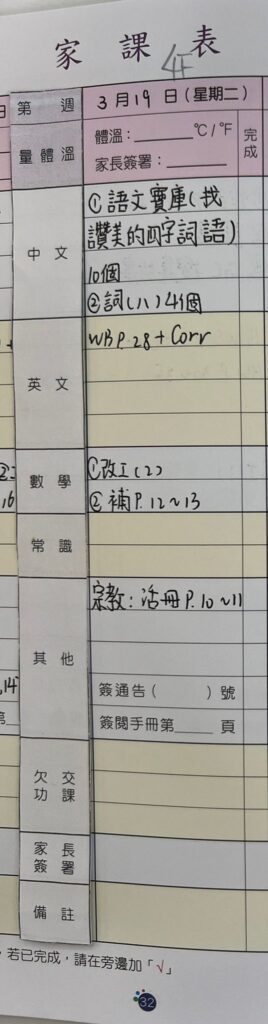 家課表
4F
第 週
3月19日(星期二)
量體溫
體溫:______°C/°F
家長簽署:______
完成
中文
①語文寶庫(找
讚美的四字詞語)
10個
②詞(八)4個
英文
WB P.28 + Corr
數學
①改工(2)
②補P.12~13
常識
其他
宗教:活冊P.10~11
簽通告( )號
簽閱手冊第____頁
欠交功課
家長簽署
備註
,若已完成,請在旁邊加「√」
32